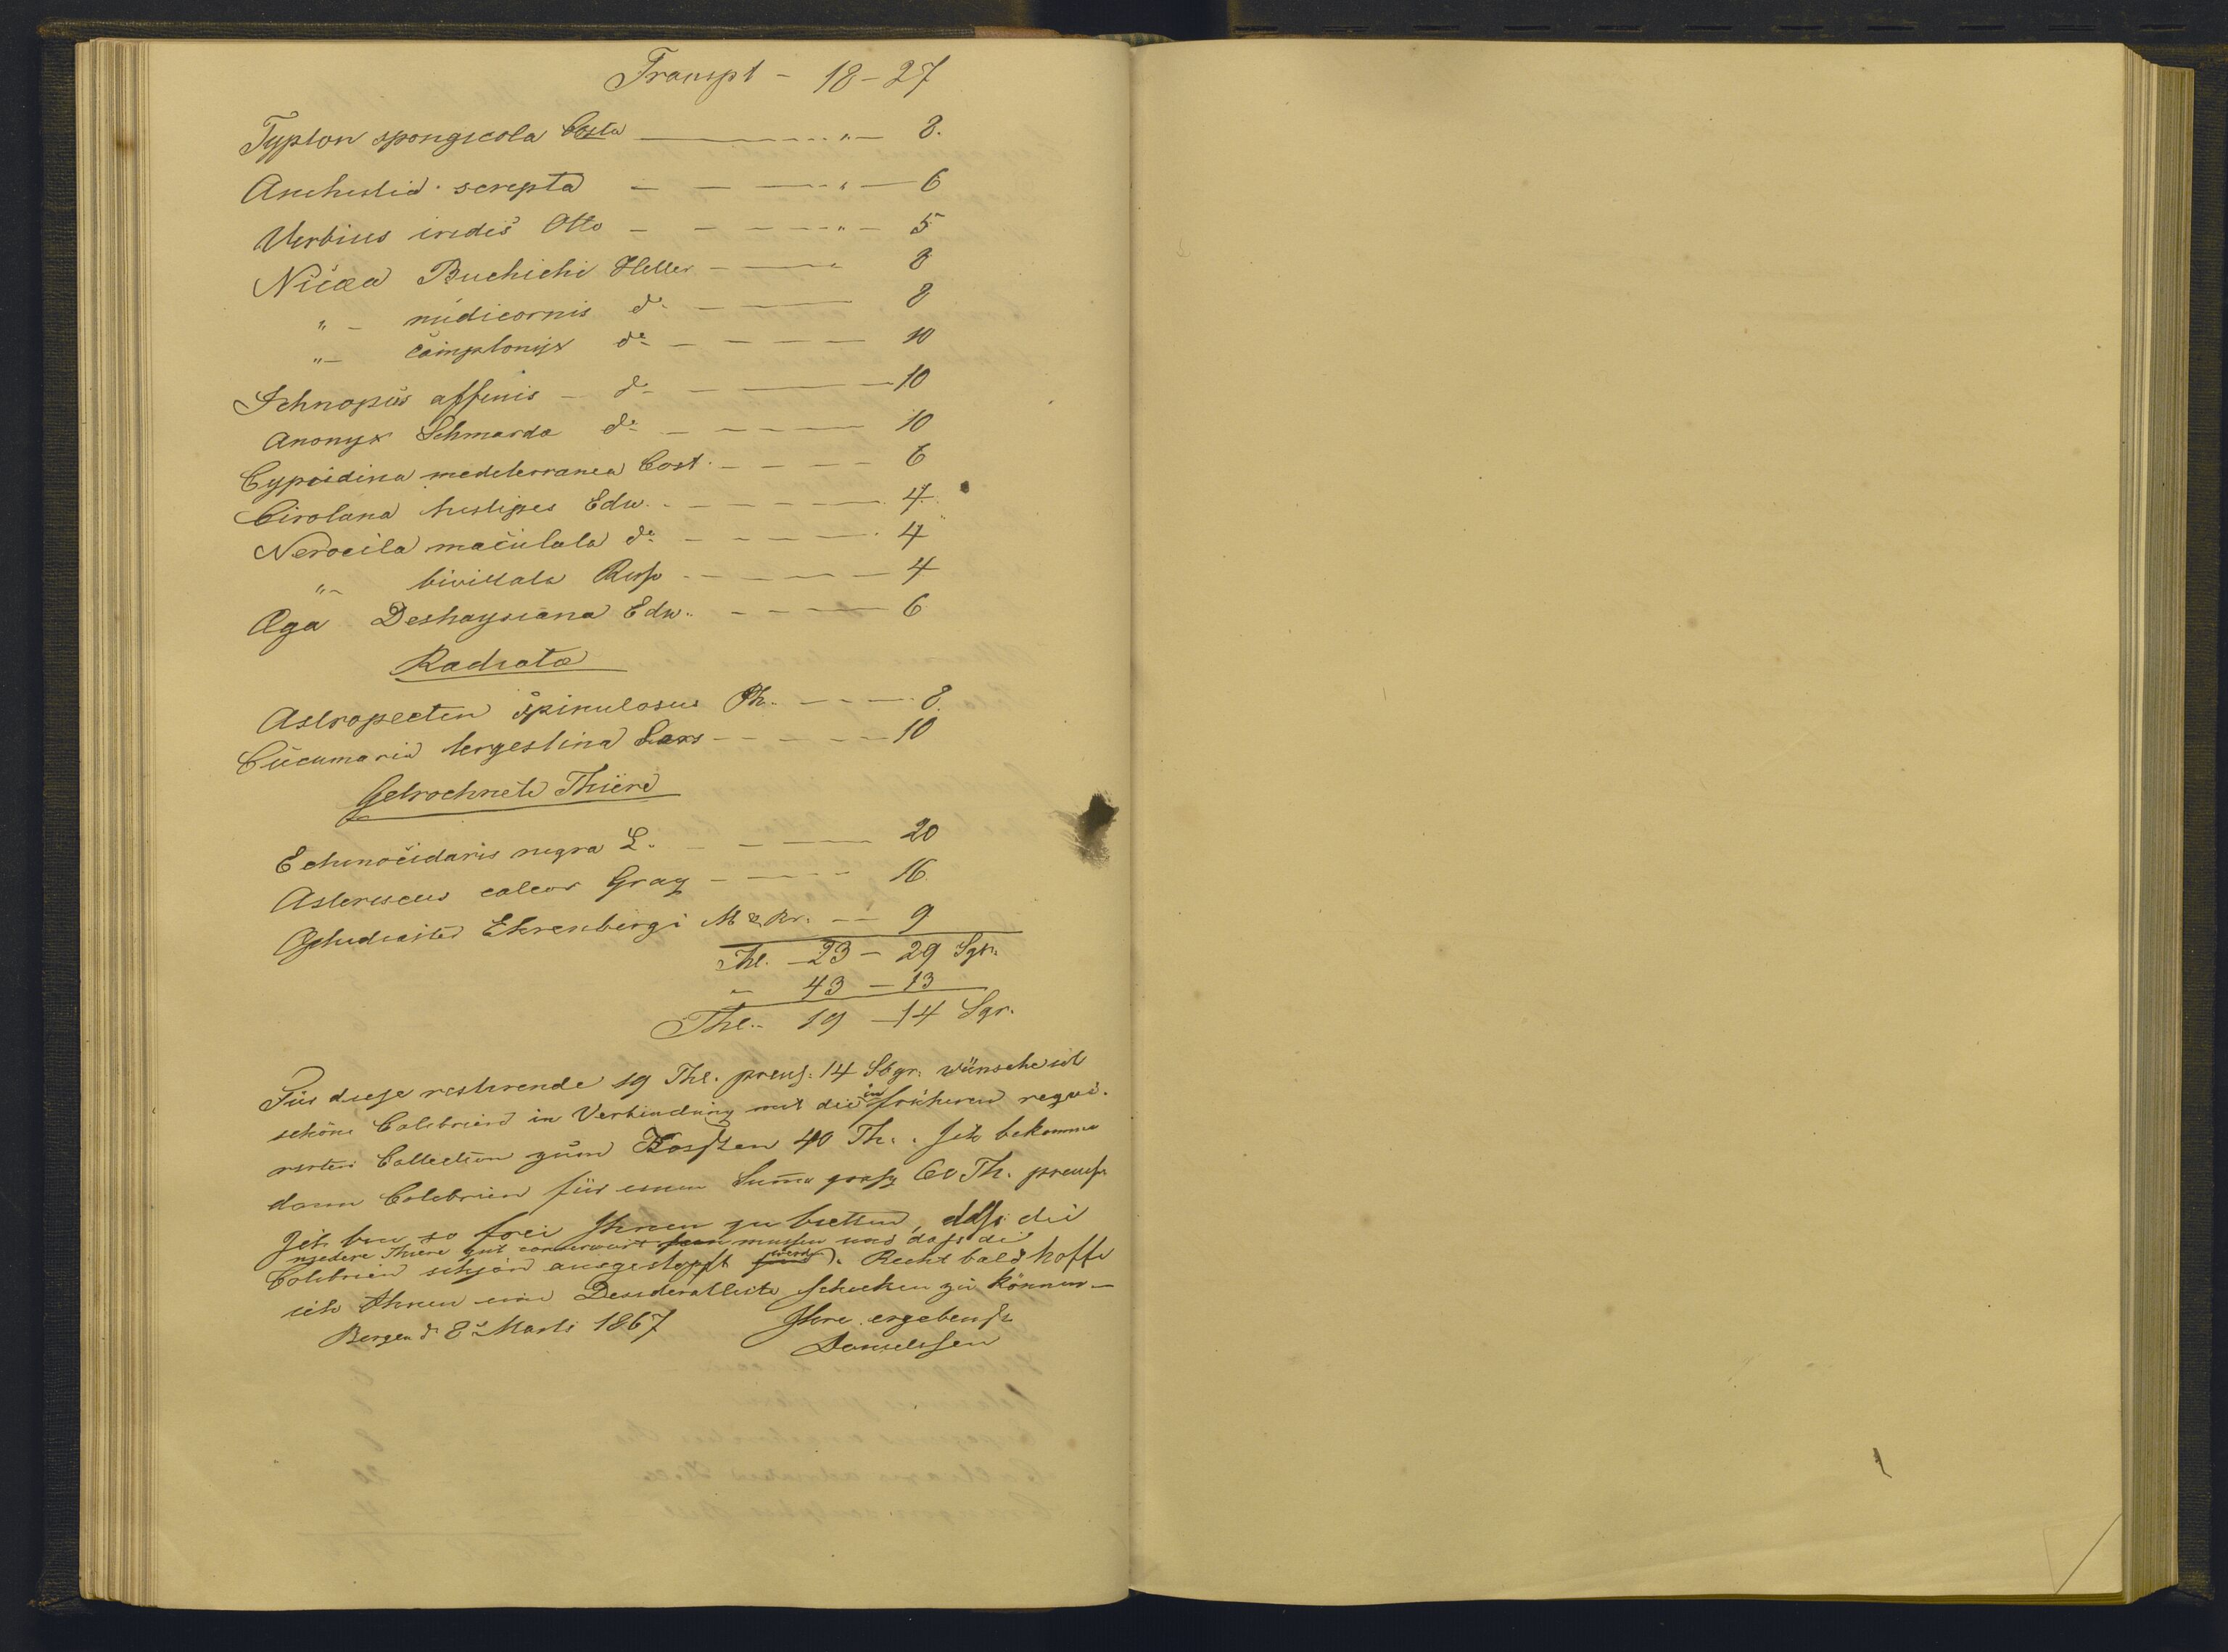 Transpt - 18-27
Typton spongicola Costa — " — 8.
Anchistia scripta - - — " — 6
Virbius viridis Otto - - - — " - 5
Nicæa Buchichi Heller - — " 8
" - nudicornis do - — 8
" - camptonyx do - - - - — 10
Ichnopus affinis - do - — 10
Anonyx Schmardæ do - - - - — 10
Cypridina mediterranea Cost. - - - - 6
Cirolana hirtipes Edw. - - - - — 4
Nerocila maculata do - - - - — 4
" - bivittata Risso - - - - — 4
Æga Deshaysiana Edw. - - - — 6
Radiata
Astropecten spinulosus Ph. - - - — 8
Cucumaria tergestina Sars - - - - — 10
Getrochnete Thiere
Echinocidaris nigra L. - - — 20
Asteriscus calcar Gray - - - - 16
Ophidiaster Ehrenbergi M & Tr. - - 9
Thl. - 23 - 29 Sgr.
" 43 - 13
Thl. - 19 - 14 Sgr.
Für diese restirende 19 Thl. preuss: 14 Sbgr: wünsche ich
schöne Colibrien in Verbindung mit die in früheren requi-
rirten Collection zum Kosten 40 Th. . Ich bekomme
dann Colibrien für einen Suma 60 Th. preuss
Ich bin so frei Ihnen zu bitten, dass die
niedere Thiere gut conserwirt sein mussen und dass die
Colibrien schön ausgestopft sind werden. Recht bald hoffe
ich Ihnen eine Desideratliste schicken zu können -
Bergen d 8de Marts 1867 Ihre ergebenste
Danielssen